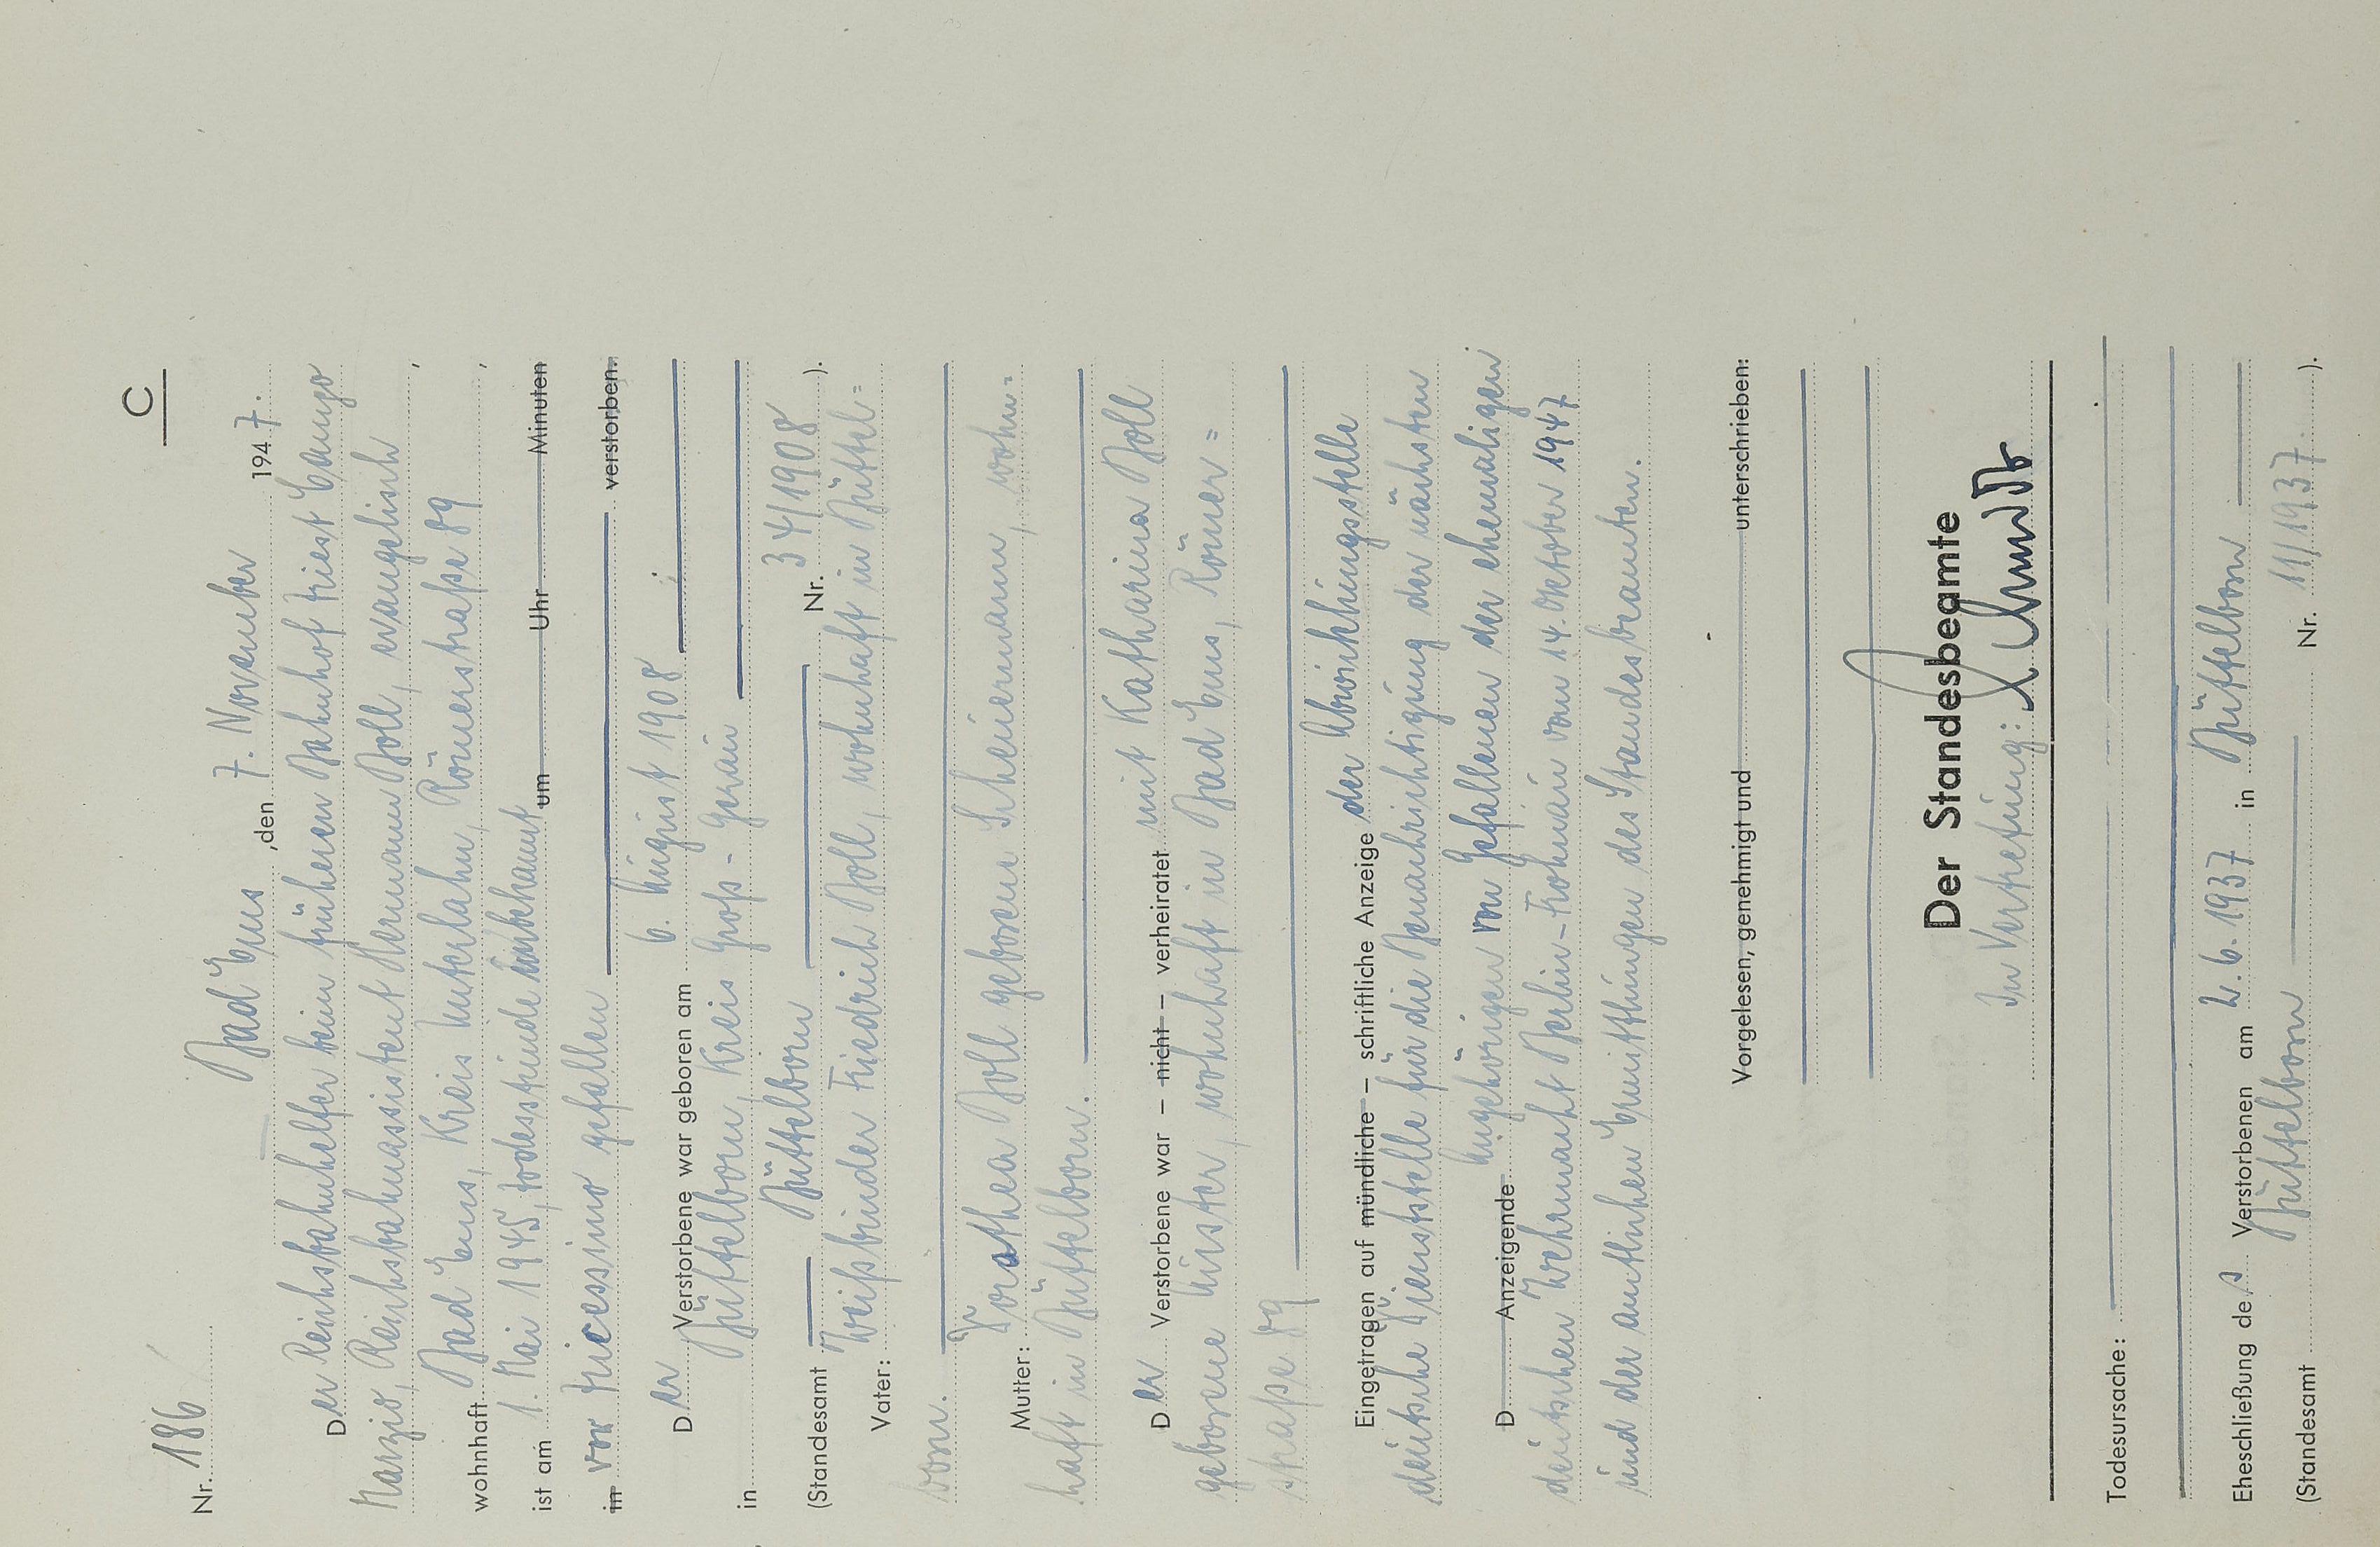 C
Nr. 186
Bad Ems, den 7. November 1947.
Der Reichsbahnhelfer beim früheren Bahnhof Triest Campo
Marzio, Reichsbahnassistent Hermann Boll, evangelisch,
wohnhaft Bad Ems, Kreis Unterlahn, Römerstraße 89,
ist am 1. Mai 1945, Todesstunde unbekannt um Uhr Minuten
in vor Micessino gefallen verstorben.
Der Verstorbene war geboren am 6. August 1908
in Büttelborn, Kreis Groß-Gerau
(Standesamt Büttelborn Nr. 34/1908).
Vater: Weißbinder Friedrich Boll, wohnhaft in Büttel=
born.
Mutter: Dorothea Boll geborene Scheuermann, wohn=
haft in Büttelborn.
Der Verstorbene war – nicht – verheiratet mit Katharina Boll
geborene Küster, wohnhaft in Bad Ems, Römer=
straße 89
Eingetragen auf mündliche – schriftliche Anzeige der Abwicklungsstelle
deutsche Dienststelle für die Benachrichtigung der nächsten
D Anzeigende Angehörigen von Gefallenen der ehemaligen
deutschen Wehrmacht Berlin-Frohnau vom 14. Oktober 1947
und der amtlichen Ermittlungen des Standesbeamten.
Vorgelesen, genehmigt und unterschrieben:
Der Standesbeamte
In Vertretung:
Todesursache:
Eheschließung des Verstorbenen am 2.6.1937 in Büttelborn
(Standesamt Büttelborn Nr. 11/1937.).